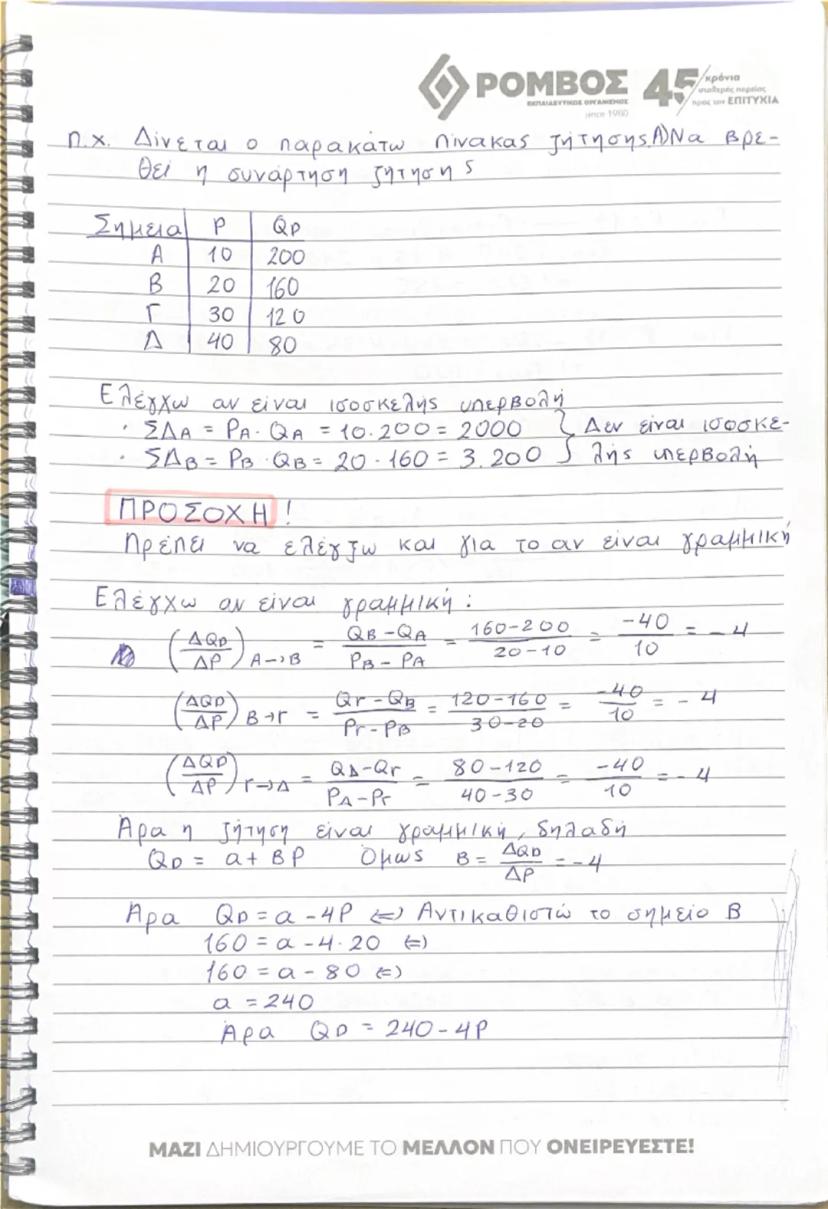 ΡΟΜΒΟΣ
ΕΚΠΑΙΔΕΥΤΙΚΟΣ ΟΡΓΑΝΙΣΜΟΣ
since 1980
45 χρόνια
σταθερής πορείας
προς την ΕΠΙΤΥΧΙΑ
π.χ. Δίνεται ο παρακάτω πίνακας ζήτησης. Α) Να βρε-
θεί η συνάρτηση ζήτησης
Σημεία P QD
Α 10 200
Β 20 160
Γ 30 120
Δ 40 80
Ελέγχω αν είναι ισοσκελής υπερβολή
· ΣΔA = PA · QA = 10.200 = 2000 } Δεν είναι ισοσκε-
· ΣΔB = PB · QB = 20 · 160 = 3.200 } λής υπερβολή
ΠΡΟΣΟΧΗ!
Πρέπει να ελέγξω και για το αν είναι γραμμική
Ελέγχω αν είναι γραμμική:
(ΔQD/ΔP) Α→Β = (QB - QA)/(PB - PA) = (160-200)/(20-10) = -40/10 = -4
(ΔQD/ΔP) Β→Γ = (QΓ - QB)/(PΓ - PB) = (120-160)/(30-20) = -40/10 = -4
(ΔQD/ΔP) Γ→Δ = (QΔ - QΓ)/(PΔ - PΓ) = (80-120)/(40-30) = -40/10 = -4
Άρα η ζήτηση είναι γραμμική, δηλαδή
QD = α + ΒP Όμως Β = ΔQD/ΔP = -4
Άρα QD = α - 4P <=> Αντικαθιστώ το σημείο Β
160 = α - 4 · 20 <=>
160 = α - 80 <=>
α = 240
Άρα QD = 240 - 4P
ΜΑΖΙ ΔΗΜΙΟΥΡΓΟΥΜΕ ΤΟ ΜΕΛΛΟΝ ΠΟΥ ΟΝΕΙΡΕΥΕΣΤΕ!